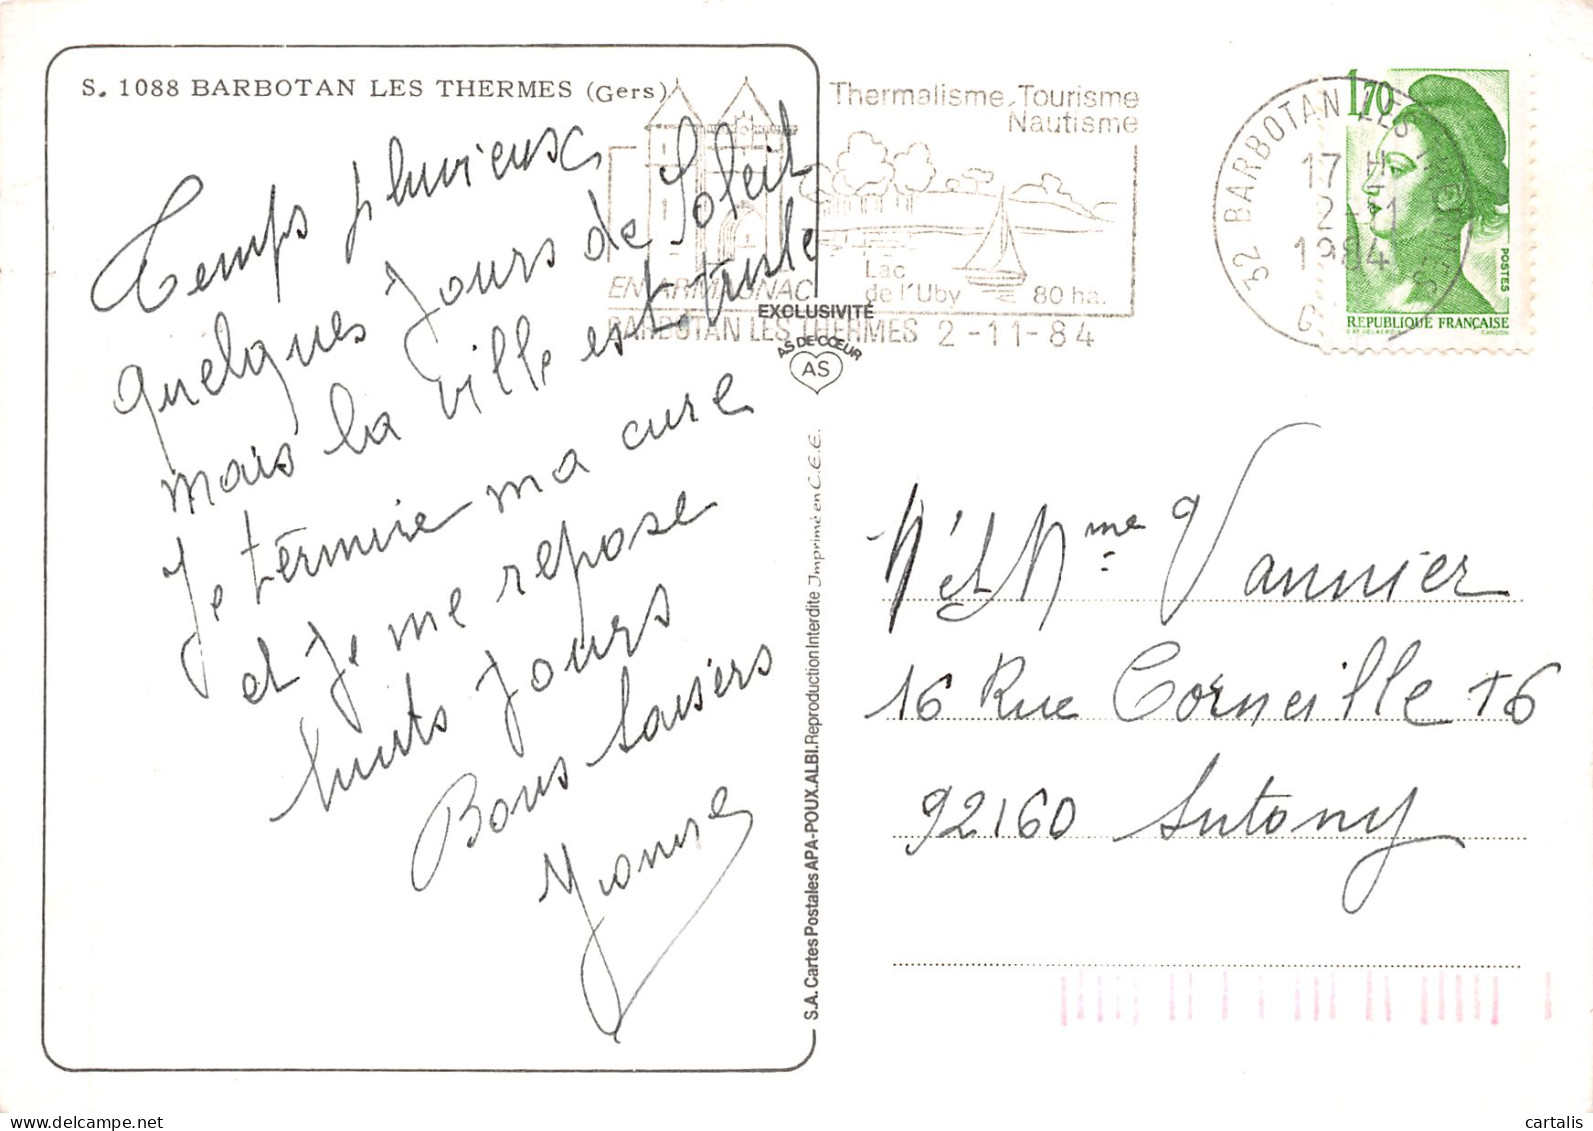 S. 1088 BARBOTAN LES THERMES (Gers)
Temps pluvieux
quelques Jours de Soleil
mais la ville est triste
Je termine ma cure
et Je me repose
huits Jours
Bons baisers
Thermalisme, Tourisme
Nautisme
EN ARMAGNAC
Lac
de l'Uby
80 ha.
BARBOTAN LES THERMES 2-11-84
EXCLUSIVITÉ
AS DE CŒUR
AS
32 BARBOTAN LES THERMES
17 H
2-11
1984
1,70
POSTES
REPUBLIQUE FRANÇAISE
S.A. Cartes Postales APA-POUX. ALBI. Reproduction Interdite Imprimé en C.E.E.
M et Mme Vannier
16 Rue Corneille T6
92160 Antony
delcampe.net
cartalis